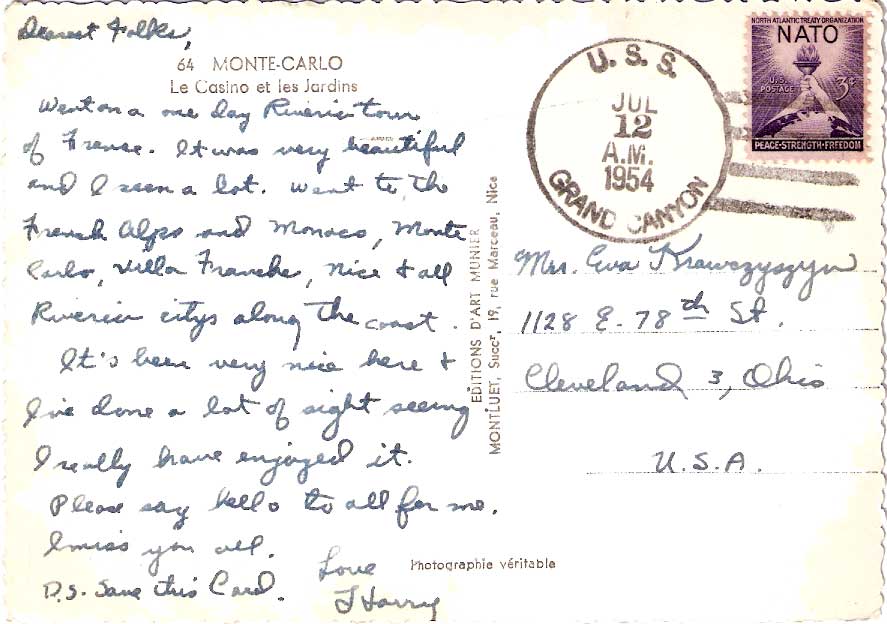 Dearest Folks,
64 MONTE-CARLO
Le Casino et les Jardins
Went on a one day Riveria tour
of France. It was very beautiful
and I seen a lot. Went to the
French Alps and Monaco, Monte
Carlo, Villa Franche, Nice & all
Riveria citys along the coast.
It's been very nice here &
I've done a lot of sight seeing
I really have enjoyed it.
Please say hello to all for me.
I miss you all.
Love
P.S. Save this Card.
Harry
EDITIONS D'ART MUNIER
MONTLUET, Succr, 19, rue Marceau, Nice
Photographie véritable
U. S. S.
JUL
12
A.M.
1954
GRAND CANYON
NORTH ATLANTIC TREATY ORGANIZATION
NATO
U.S. POSTAGE
3¢
PEACE-STRENGTH-FREEDOM
Mrs. Eva Krawczyszyn
1128 E. 78th St.
Cleveland 3, Ohio
U.S.A.